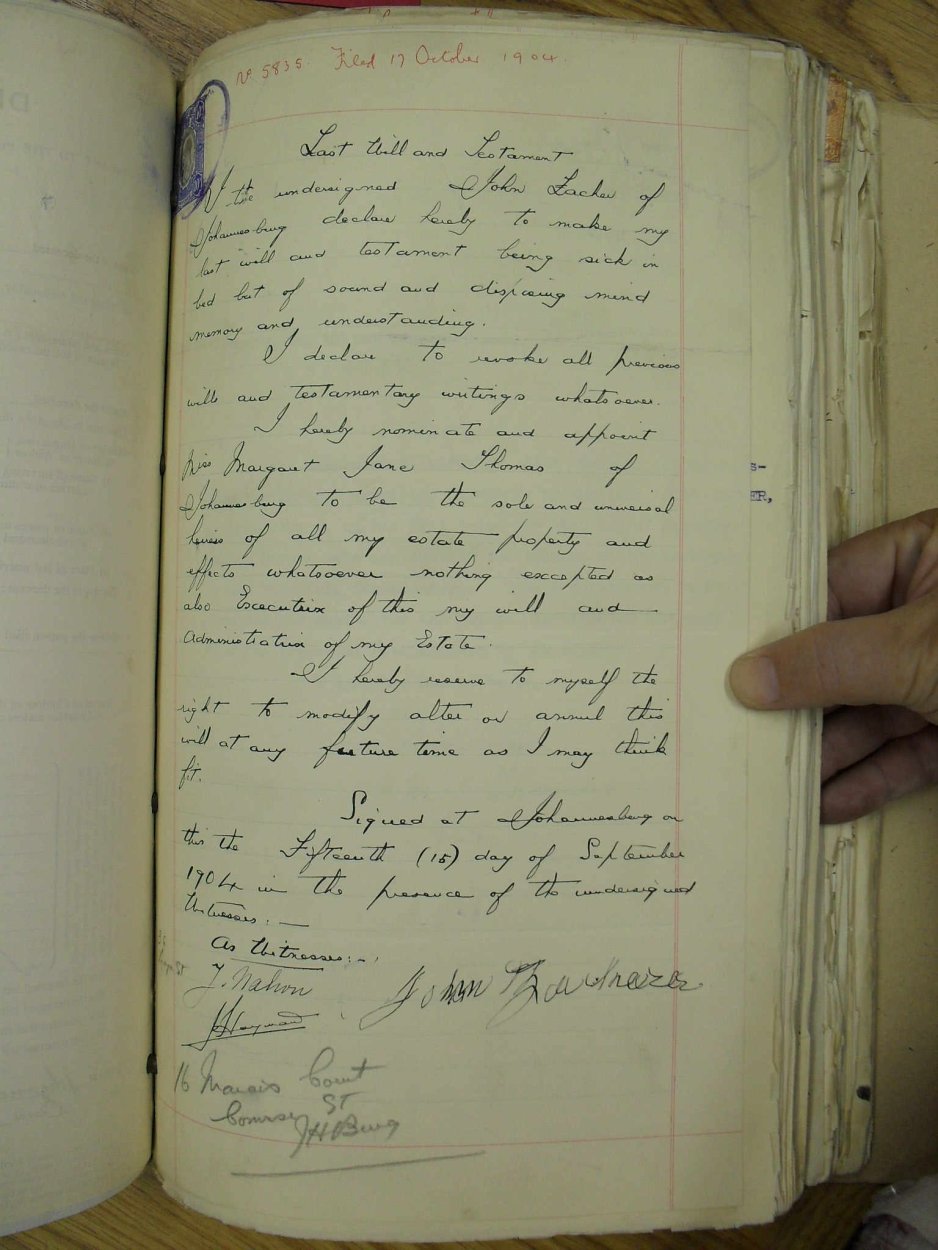 No 5835. Filed 17 October 1904.
Last Will and Testament
I the undersigned John Zacher of
Johannesburg declare hereby to make my
last will and testament being sick in
bed but of sound and disposing mind
memory and understanding.
I declare to revoke all previous
wills and testamentary writings whatsoever.
I hereby nominate and appoint
Miss Margaret Jane Thomas of
Johannesburg to be the sole and universal
heiress of all my estate property and
effects whatsoever nothing excepted as
also Executrix of this my will and
Administratrix of my Estate.
I hereby reserve to myself the
right to modify alter or annul this
will at any future time as I may think
fit.
Signed at Johannesburg on
this the Fifteenth (15) day of September
1904 in the presence of the undersigned
Witnesses:—
As Witnesses:—
John
16 Marais Court
St
JHBurg